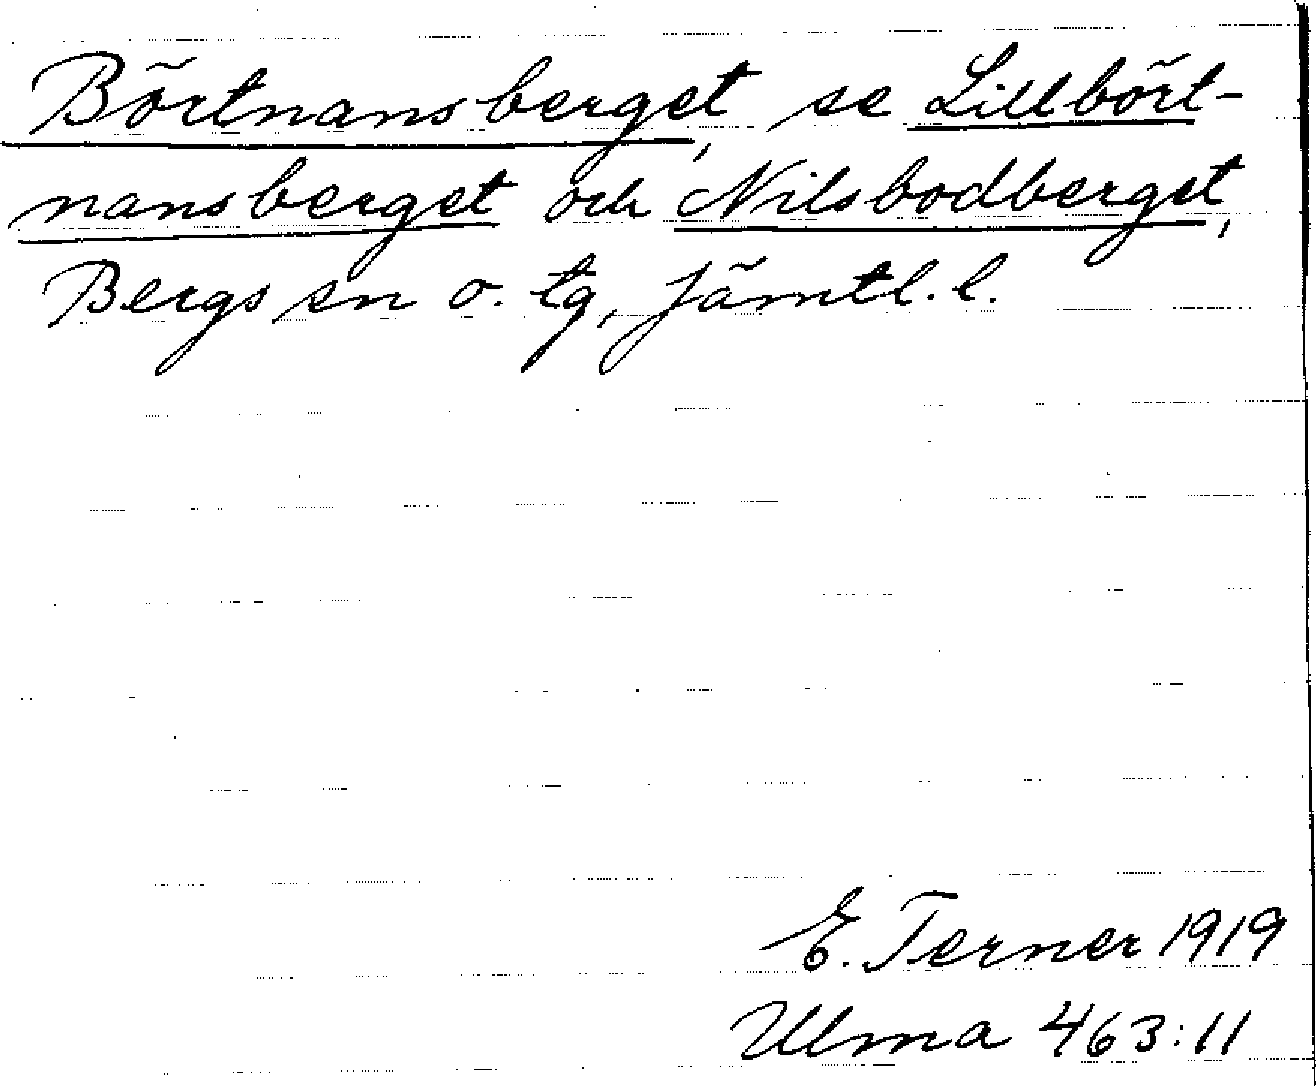 Börtnansberget, se Lillbört-
nansberget och Nilsbodberget,
Bergs sn o. tg, Jämtl. l.
E. Terner 1919
Ulma 463:11